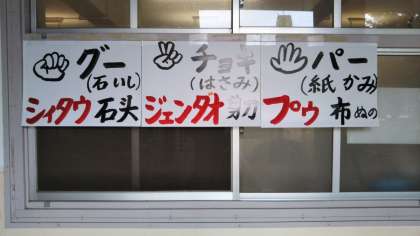 グー
(石 いし)
シィタウ 石头
チョキ
(はさみ)
ジェンダオ 剪刀
パー
(紙 かみ)
プゥ 布 ぬの